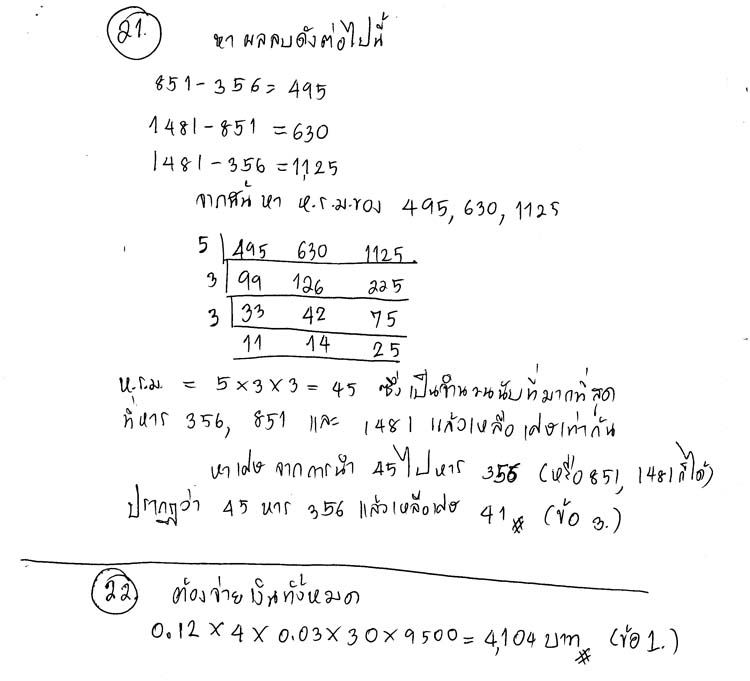 21. หาผลลบดังต่อไปนี้
851 - 356 = 495
1481 - 851 = 630
1481 - 356 = 1,125
จากนั้น หา ห.ร.ม. ของ 495, 630, 1125
5 | 495 630 1125
3 | 99 126 225
3 | 33 42 75
11 14 25
ห.ร.ม. = 5 × 3 × 3 = 45 ซึ่งเป็นจำนวนนับที่มากที่สุด
ที่หาร 356, 851 และ 1481 แล้วเหลือเศษเท่ากัน
หาเศษ จากการนำ 45 ไปหาร 356 (หรือ 851, 1481 ก็ได้)
ปรากฏว่า 45 หาร 356 แล้วเหลือเศษ 41 # (ข้อ 3.)
22. ต้องจ่ายเงินทั้งหมด
0.12 × 4 × 0.03 × 30 × 9500 = 4,104 บาท # (ข้อ 1.)